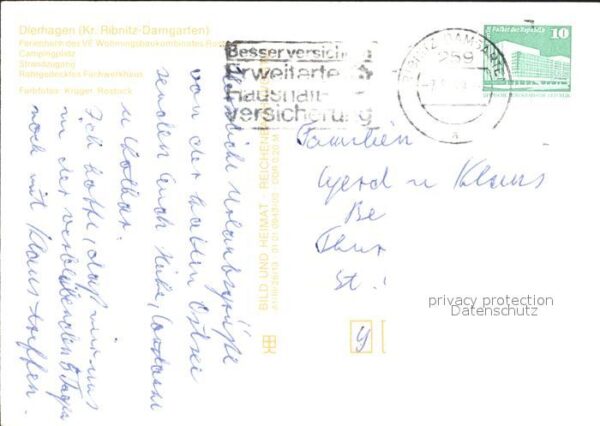 Dierhagen (Kr. Ribnitz-Damgarten)
Ferienheim des VE Wohnungsbaukombinates
Campingplatz
Strandzugang
Rohrgedecktes Fachwerkhaus
Farbfotos: Krüger, Rostock
Herzliche Urlaubsgrüße
von der kalten Ostsee
senden Euch Heike,
u Lothar.
Ich hoffe, daß wir uns
in den verbleibenden 5 Tagen
noch mit Klaus treffen.
BILD UND HEIMAT REICHENBACH
Besser versichert
Erweiterte
Haushalt-
versicherung
RIBNITZ-DAMGARTEN
259
a
Palast der Republik
10
Familien
Gerd u Klaus
Be
Thur
St.
privacy protection
Datenschutz